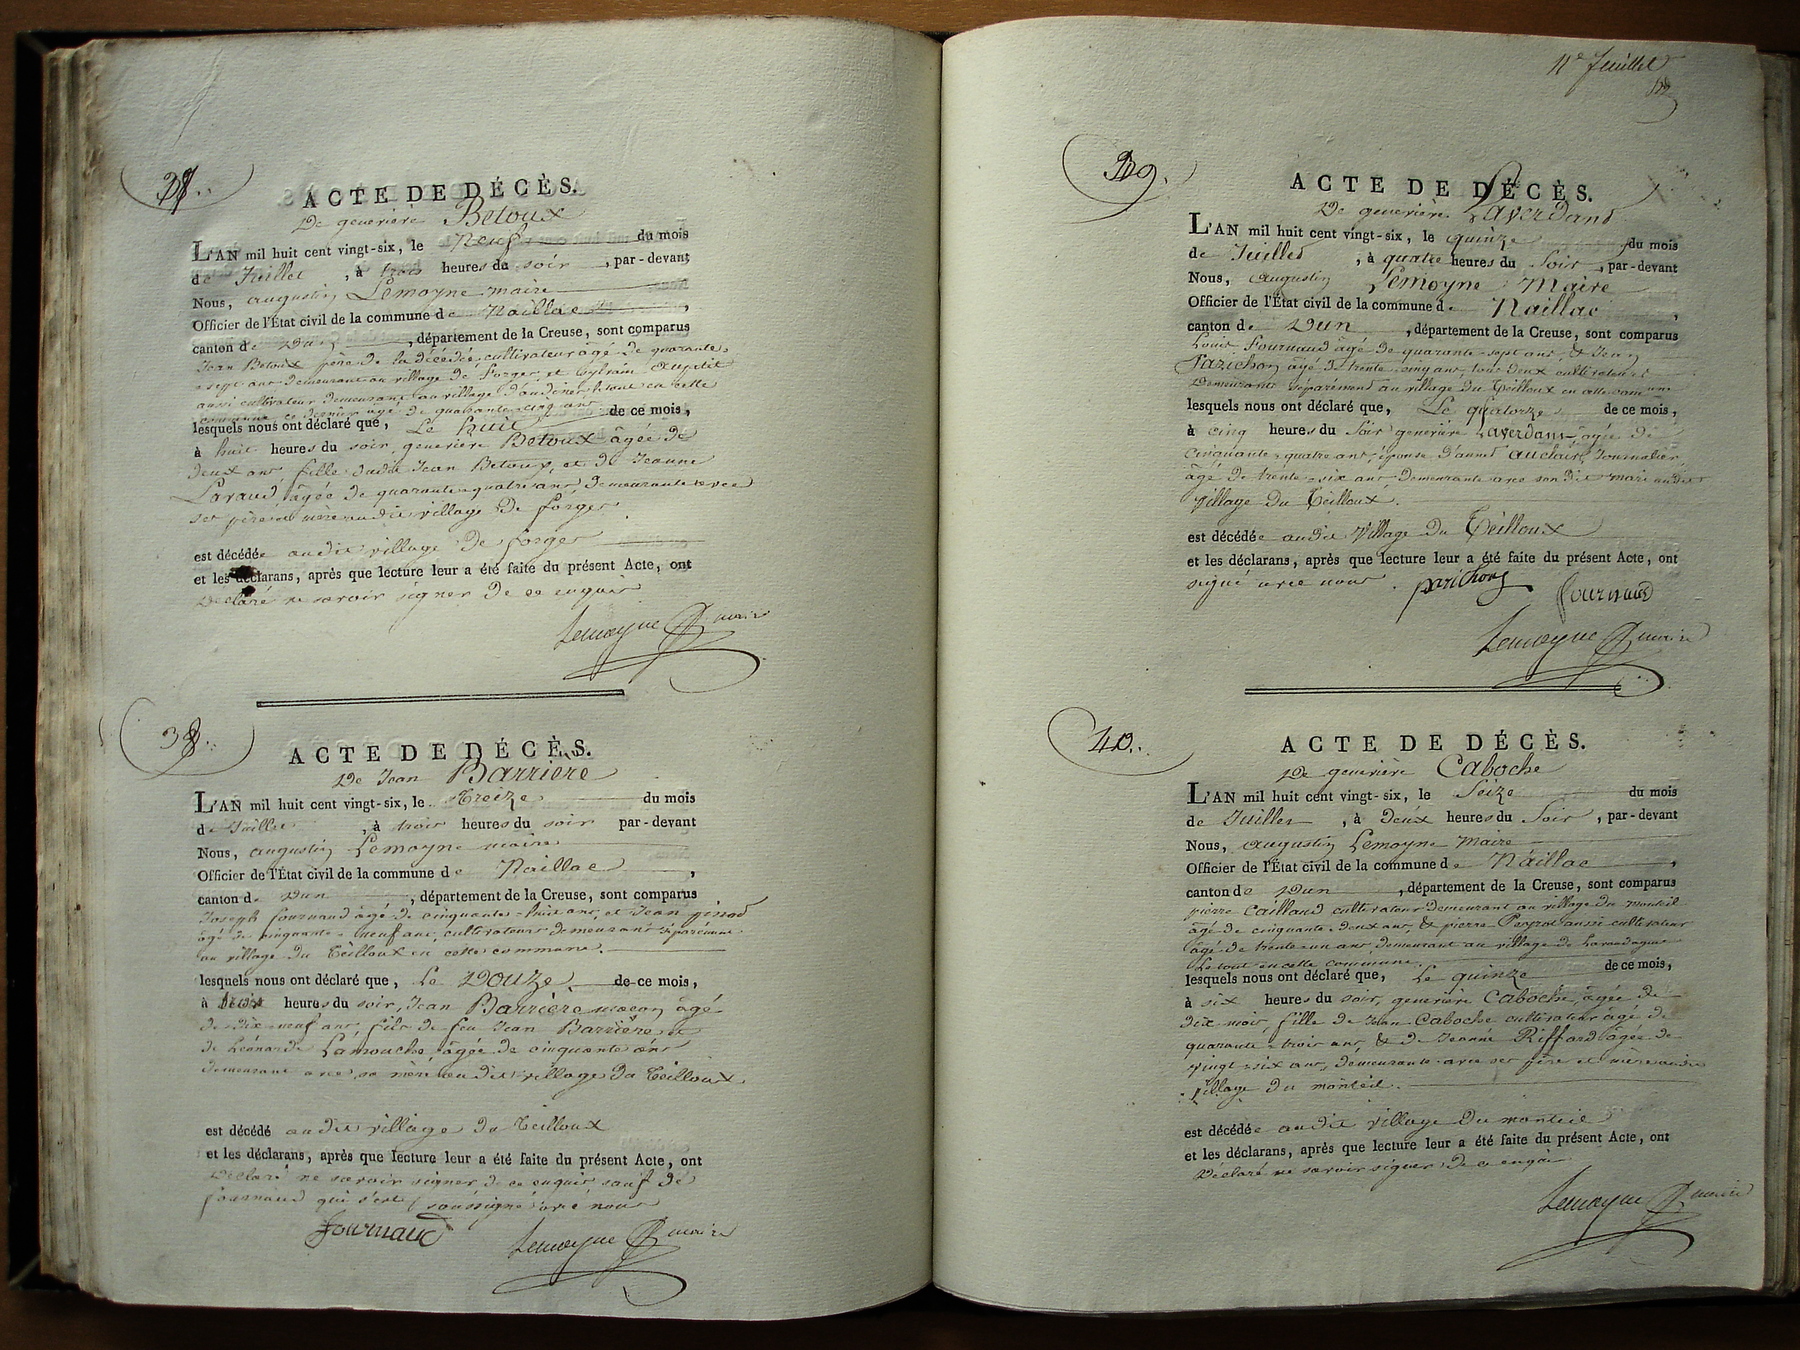 37..
ACTE DE DÉCÈS.
De genevieve Betoux
L'AN mil huit cent vingt-six, le Neuf du mois
de Juillet, à trois heures du soir, par-devant
Nous, augustin Lemoyne maire
Officier de l'État civil de la commune de Naillac,
canton de Dun, département de la Creuse, sont comparus
Jean Betoux père de la décédée cultivateur âgé de quarante
sept ans demeurant au village de forges et Sylvain aupetit
aussi cultivateur demeurant au village d'audiner le tout en cette
commune ce dernier âgé de quarante cinq ans
lesquels nous ont déclaré que, Le huit de ce mois,
à huit heures du soir, genevieve Betoux âgée de
deux ans, fille dudit Jean Betoux, et de Jeanne
Laraud âgée de quarante-quatre ans demeurante avec
ses père et mère au dit village de forges
est décédée au dit village de forges
et les déclarans, après que lecture leur a été faite du présent Acte, ont
Declaré ne savoir signer de ce enquis
Lemoyne maire
38..
ACTE DE DÉCÈS.
De Jean Barrière
L'AN mil huit cent vingt-six, le Treize du mois
de Juillet, à trois heures du soir par-devant
Nous, augustin Lemoyne maire
Officier de l'État civil de la commune de Naillac,
canton de Dun, département de la Creuse, sont comparus
Joseph fournaud âgé de cinquante-huit ans, et Jean pinod
âgé de cinquante-neuf ans, cultivateurs demeurans séparément
au village du Teilloux en cette commune.
lesquels nous ont déclaré que, Le Douze de ce mois,
à trois heures du soir, Jean Barrière maçon âgé
de dix-neuf ans, fils de feu Jean Barrière et
de Léonarde Lamouche, âgée de cinquante ans
demeurant avec sa mère au dit village du Teilloux
est décédé au dit village du Teilloux
et les déclarans, après que lecture leur a été faite du présent Acte, ont
Déclaré ne savoir signer de ce enquis sauf le
fournaud qui s'est soussigné avec nous
fournaud
Lemoyne maire
11e feuillet
39.
ACTE DE DÉCÈS.
De genevieve Laverdant
L'AN mil huit cent vingt-six, le quinze du mois
de Juillet, à quatre heures du Soir, par-devant
Nous, augustin Lemoyne Maire
Officier de l'État civil de la commune de Naillac,
canton de Dun, département de la Creuse, sont comparus
Louis Fournaud âgé de quarante-sept ans, et Jean
Parichon âgé de trente cinq ans, tous deux cultivateurs
Demeurants séparément au village du Teilloux en cette commune
lesquels nous ont déclaré que, Le quatorze de ce mois,
à cinq heures du Soir genevieve Laverdant âgée de
Cinquante-quatre ans, épouse d'annet auclair, Journalier
âgé de trente-six ans demeurante avec son dit mari au dit
village du Teilloux.
est décédée au dit Village du Teilloux
et les déclarans, après que lecture leur a été faite du présent Acte, ont
signé avec nous. parichon fournaud
Lemoyne maire
40..
ACTE DE DÉCÈS.
De genevieve Caboche
L'AN mil huit cent vingt-six, le Seize du mois
de Juillet, à Deux heures du Soir, par-devant
Nous, augustin Lemoyne maire
Officier de l'État civil de la commune de Naillac,
canton de Dun, département de la Creuse, sont comparus
pierre Caillaud cultivateur demeurant au village du monteil
âgé de cinquante-deux ans, & pierre Peyrot aussi cultivateur
âgé de trente-un ans demeurant au village de
Le tout en cette commune.
lesquels nous ont déclaré que, Le quinze de ce mois,
à six heures du soir, genevieve Caboche, âgée de
dix mois, fille de Jean Caboche cultivateur âgé de
quarante-trois ans, & de Jeanne Riffard âgée de
vingt-six ans, demeurante avec ses père et mère au dit
village du monteil.
est décédée au dit village du monteil
et les déclarans, après que lecture leur a été faite du présent Acte, ont
Déclaré ne savoir signer de ce enquis
Lemoyne maire